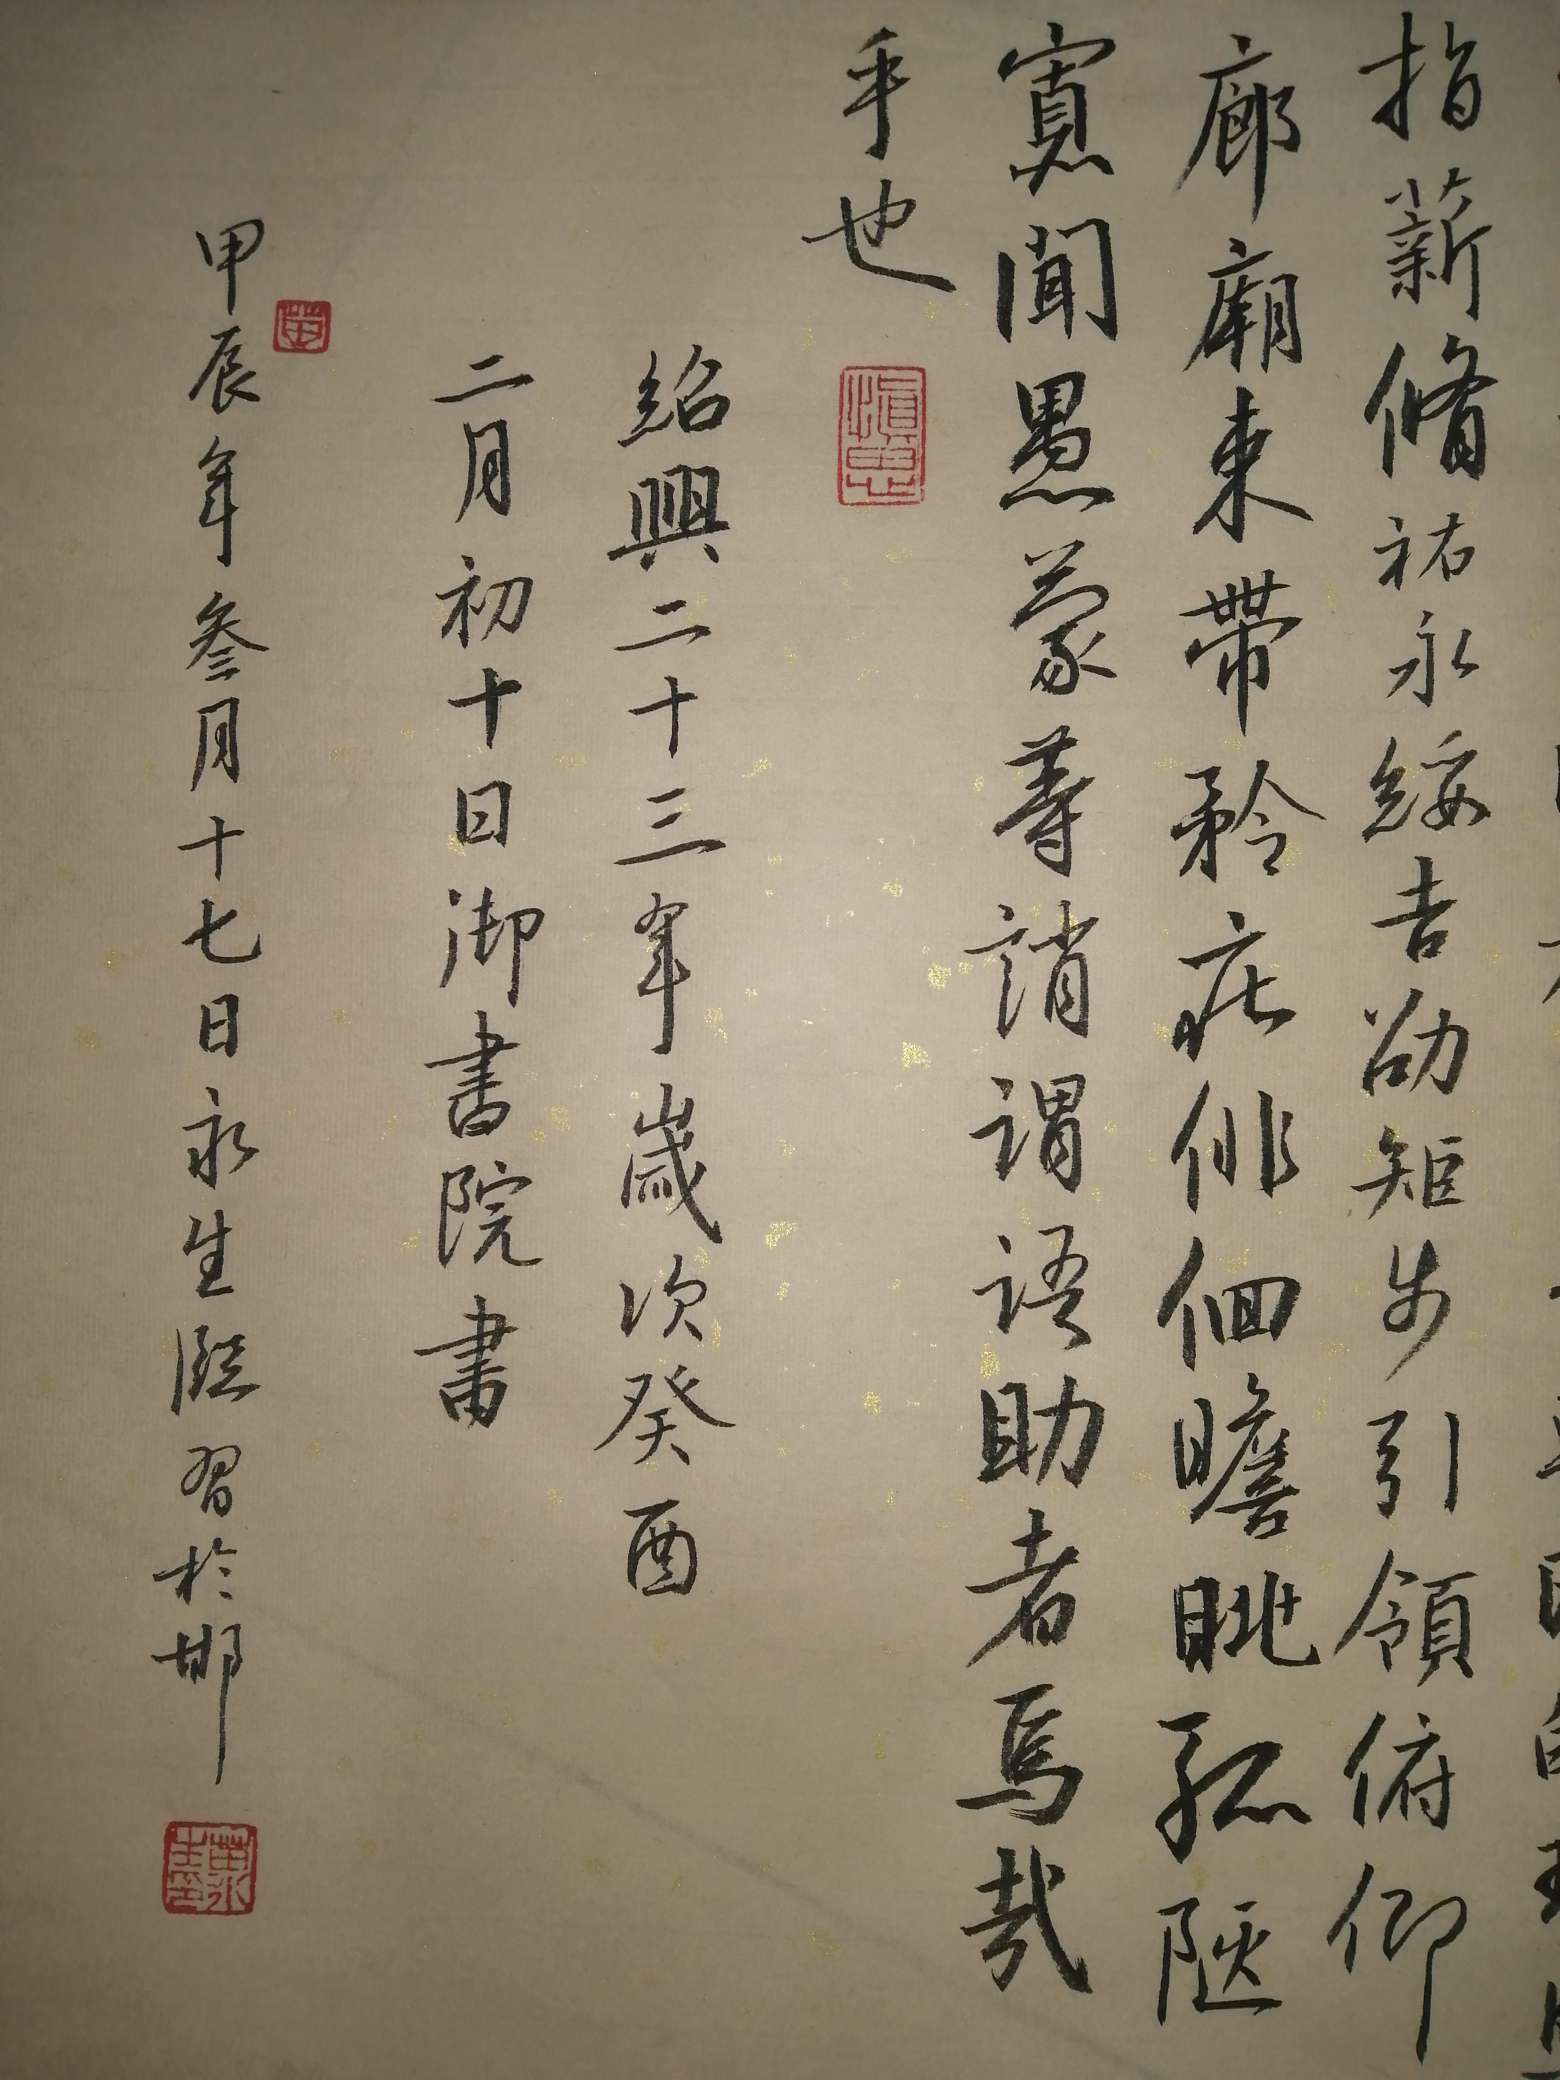 指薪脩祐永綏吉劭矩步引領俯仰
廊廟束帶矜莊俳佪瞻眺孤陋
寡聞愚蒙等誚謂語助者焉哉
乎也
紹興二十三年歲次癸酉
二月初十日御書院書
甲辰年叁月十七日永生臨習於邯
黄永生印